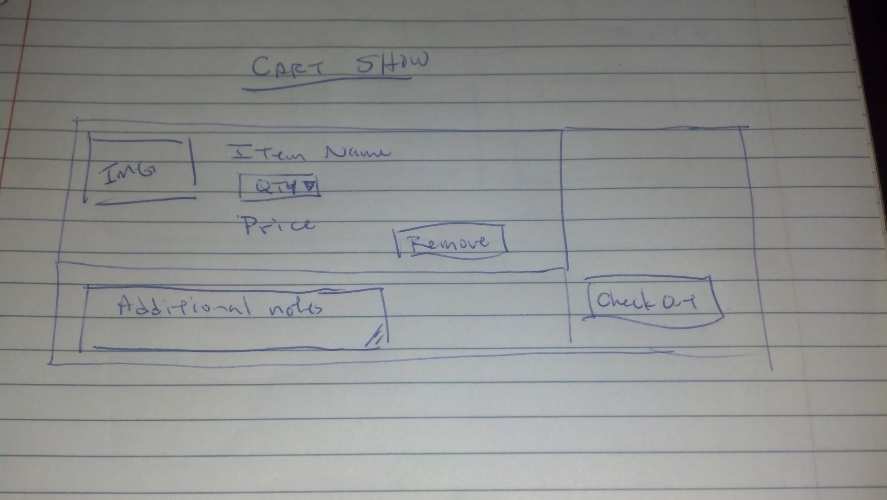 CART SHOW
IMG
ITem Name
QTY
Price
Remove
Additional notes
Check Out